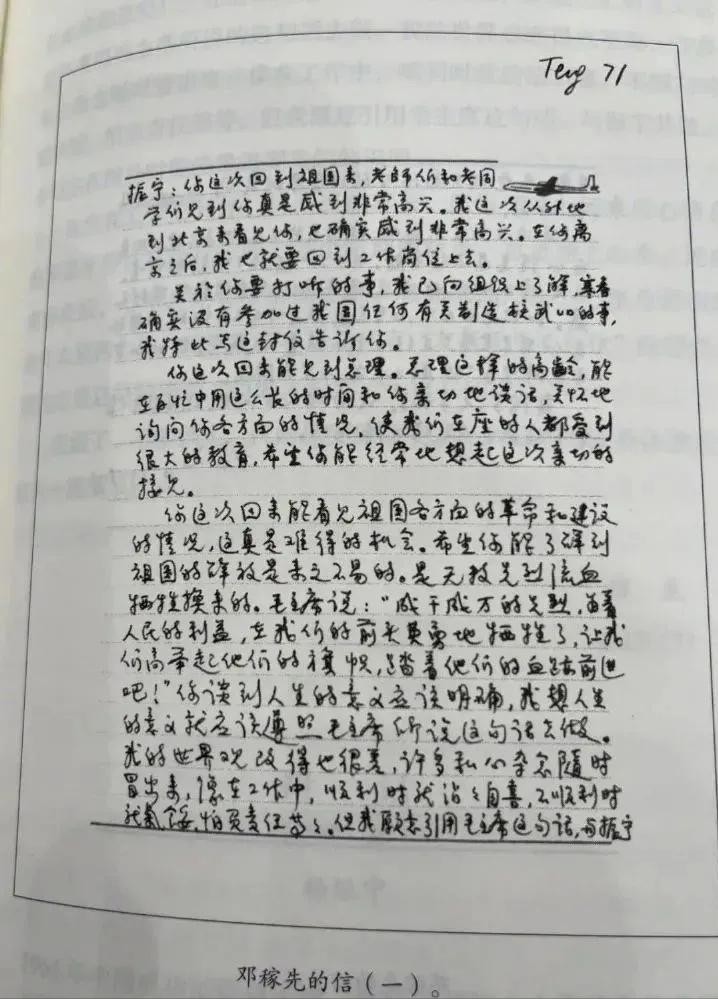 Teng 71
振宁：你这次回到祖国来，老师们和老同
学们见到你真是感到非常高兴。我这次从外地
到北京来看见你，也确实感到非常高兴。在你离
京之后，我也就要回到工作岗位上去。
关于你要打听的事，我已向组织上了解，寒春
确实没有参加过我国任何有关制造核武口的事，
我特此写这封信告诉你。
你这次回来能见到总理。总理这样的高龄，能
在百忙中用这么长的时间和你亲切地谈话，关怀地
询问你各方面的情况，使我们在座的人都受到
很大的教育，希望你能经常地想起这次亲切的
接见。
你这次回来能看见祖国各方面的革命和建设
的情况，这真是难得的机会。希望你能了解到
祖国的解放是来之不易的。是无数先烈流血
牺牲换来的。毛主席说：“成千成万的先烈，为着
人民的利益，在我们的前头英勇地牺牲了，让我
们高举起他们的旗帜，踏着他们的血迹前进
吧！”你谈到人生的意义应该明确，我想人生
的意义就应该遵照毛主席所说这句话去做。
我的世界观改得也很差，许多私心杂念随时
冒出来，像在工作中，顺利时就沾沾自喜，不顺利时
就气馁，怕负责任等等。但我愿意引用毛主席这句话，与振宁
邓稼先的信（一）。